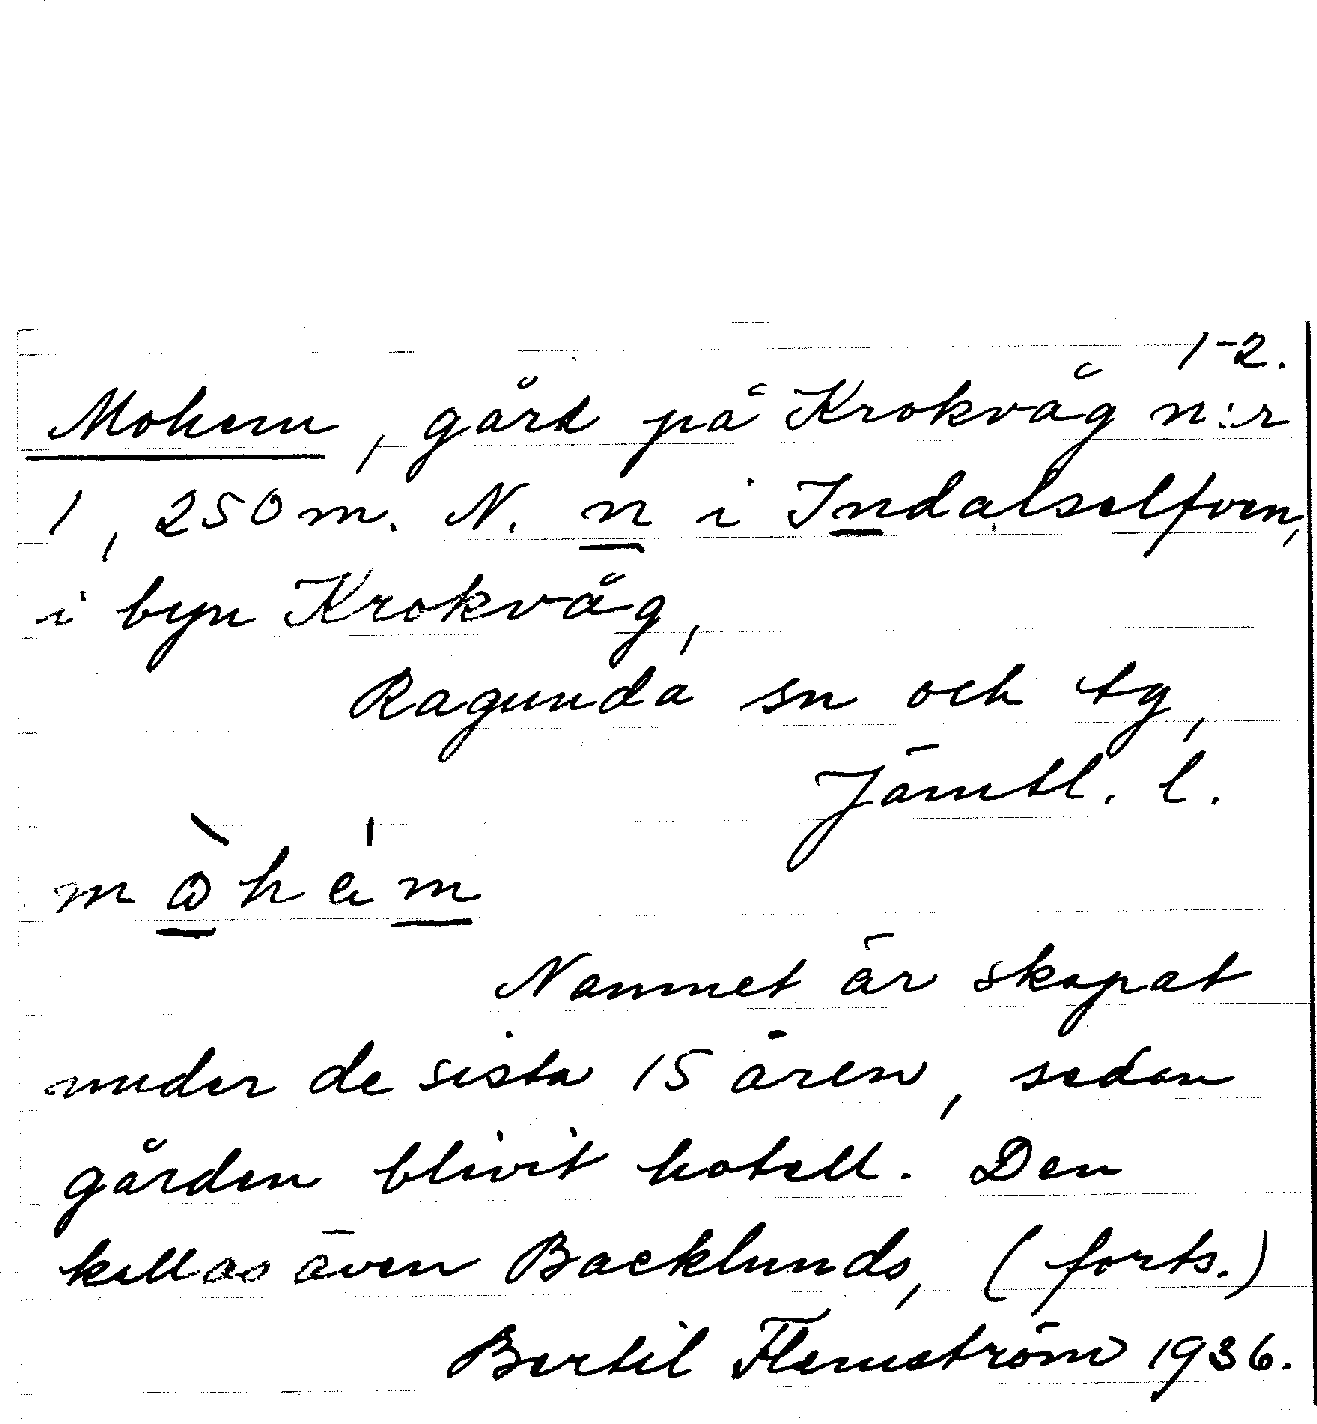 1-2.
Mohem, gård på Krokvåg n:r
1, 250 m. N. n i Indalselfven,
i byn Krokvåg,
Ragunda sn och tg,
Jämtl. l.
Namnet är skapat
under de sista 15 åren, sedan
gården blivit hotell. Den
kallas även Backlunds, (forts.)
Bertil Flemström 1936.